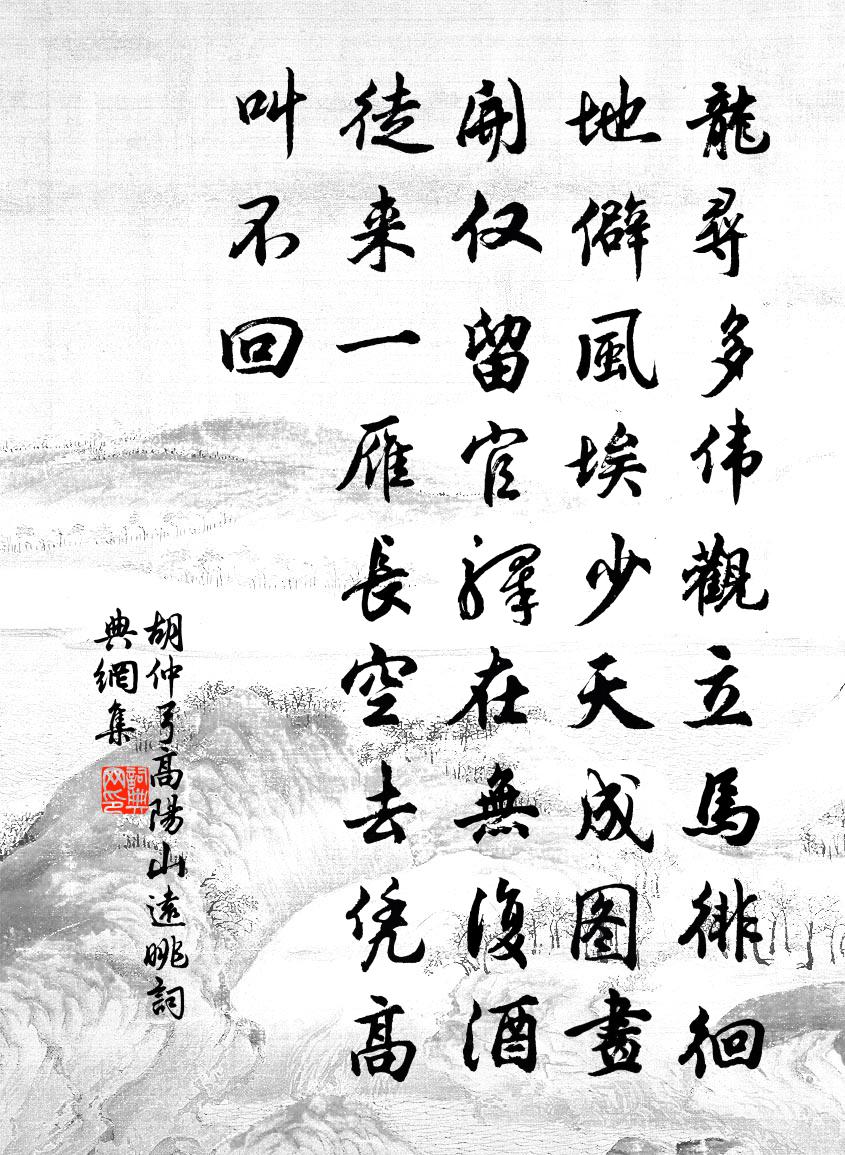 龍尋多伟觀立馬徘徊
地僻風埃少天成图畫
開仅留官驛在無復酒
徒来一雁長空去凭高
叫不回
胡仲弓高陽山遠眺詞
典網集
詞典
网印